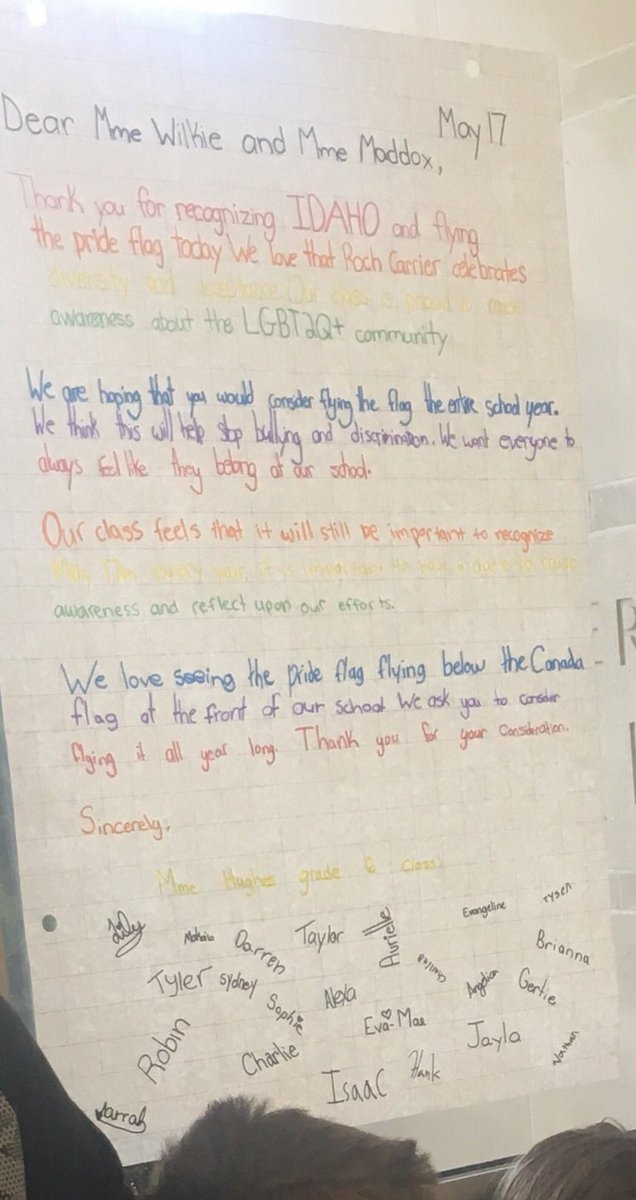 May 17
Dear Mme Wilkie and Mme Maddox,
Thank you for recognizing IDAHO and flying
the pride flag today We love that Roch Carrier celebrates
diversity and acceptance. Our class is proud to raise
awareness about the LGBT2Q+ community
We are hoping that you would consider flying the flag the entire school year.
We think this will help stop bullying and discrimination. We want everyone to
always feel like they belong at our school.
Our class feels that it will still be important to recognize
May 17th every year. It is important to to raise
awareness and reflect upon our efforts.
We love seeing the pride flag flying below the Canada
flag at the front of our school We ask you to consider
flying it all year long. Thank you for your consideration.
Sincerely,
Mme Hughes grade 6 class
Lily Darren Taylor Aurielle Evangeline Tysen
Tyler Sydney Sophie Alexa Brianna
Robin Charlie Eva-Mae Gertie
Isaac Hank Jayla Nathan
Jarrah
R